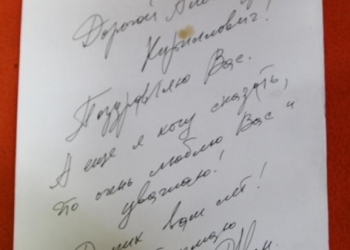 Дорогой
Кириллович!
Поздравляю Вас.
А еще я хочу сказать,
что очень люблю Вас и
уважаю!
Вам лет!